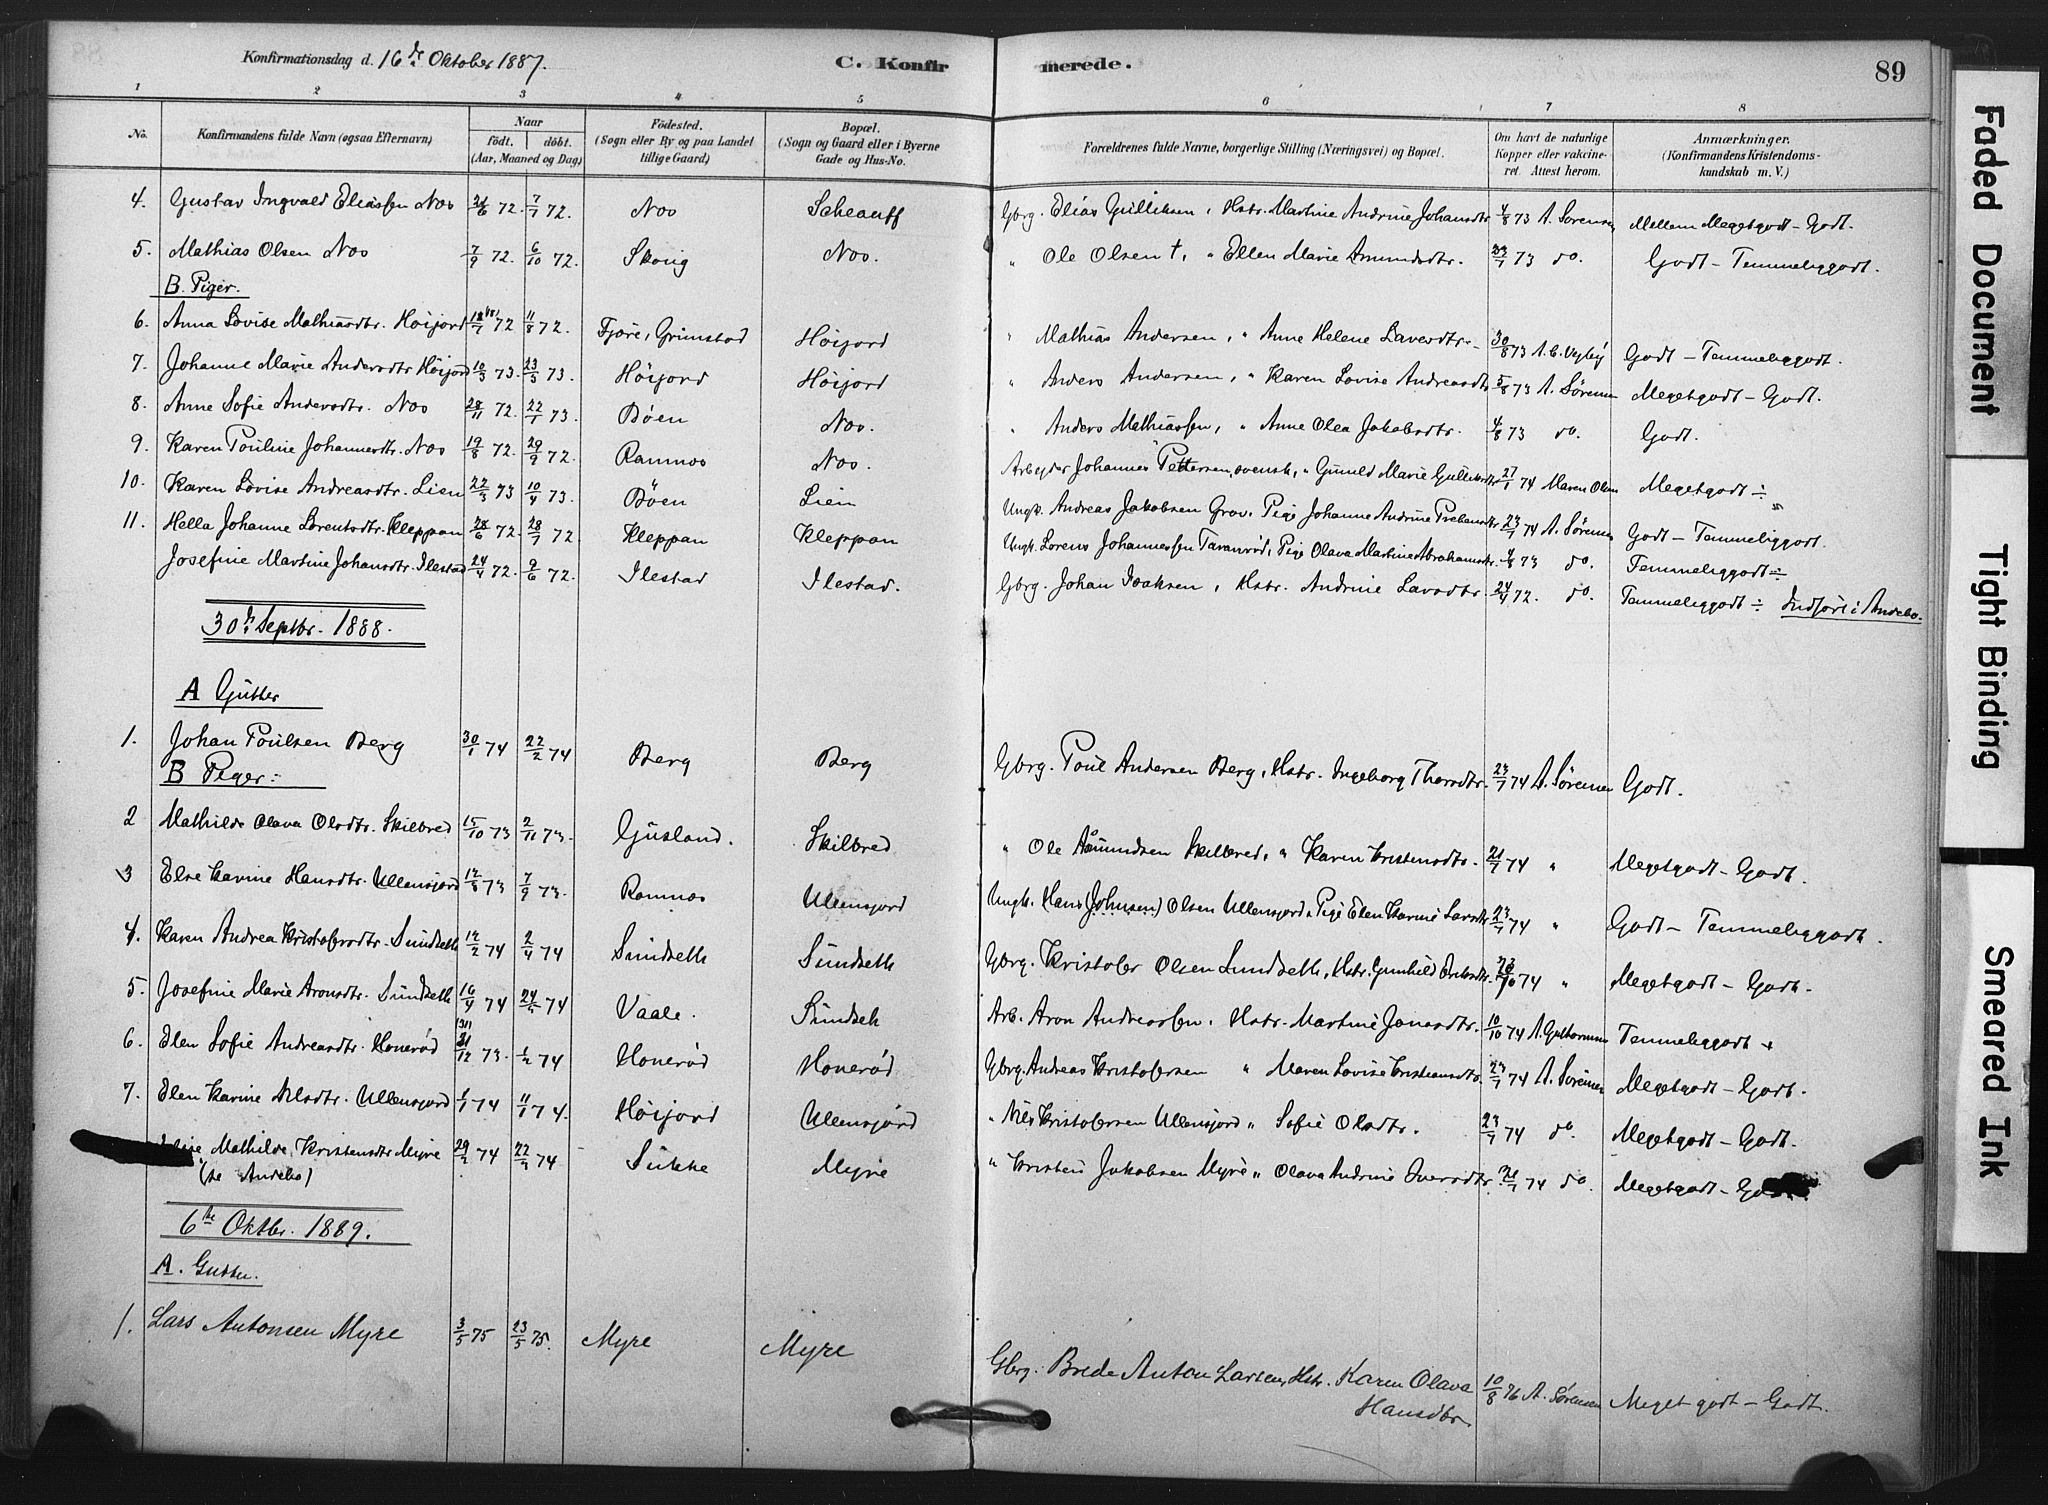 Konfirmationsdag d. 16de Oktober 1887.
C. Konfirmerede.
89
1 2 3 4 5 6 7 8
No.
Konfirmandens fulde Navn (ogsaa Efternavn)
Naar
födt. döbt.
(Aar, Maaned og Dag)
Födested.
(Sogn eller By og paa Landet tillige Gaard)
Bopæl.
(Sogn og Gaard eller i Byerne Gade og Hus-No.
Forældrenes fulde Navne, borgerlige Stilling (Næringsvei) og Bopæl.
Om havt de naturlige Kopper eller vakcineret. Attest herom.
Anmærkninger.
(Konfirmandens Kristendomskundskab m. V.)
4. Gustav Ingvald Eliassen Nos 26/6 72. 7/7 72. Nos Scheauff Gbrg. Elias Gulliksen, Hstr. Martine Andrine Johansdtr 4/8 73 A. Sørensen Mellem Megetgodt – Godt.
5. Mathias Olsen Nos 7/9 72. 6/10 72. Skorig Nos. " Ole Olsen †, " Ellen Marie Amundsdtr. 23/7 73 do. Godt – Temmeliggodt.
B. Piger.
6. Anna Lovise Mathiasdtr. Höijord 18/7 72 11/8 72. Fjøre, Grimstad Höijord " Mathias Andersen, " Anne Helene Lavesdtr. 30/8 73 A. C. Vegby Godt – Temmeliggodt.
7. Johanne Marie Andersdtr Höijord 10/3 73. 23/3 73. Höijord Höijord " Anders Andersen, " Karen Lovise Andreasdtr 5/8 73 A. Sørensen Megetgodt – Godt.
8. Anne Sofie Andersdtr. Nos 28/11 72. 22/1 73. Böen Nos. " Anders Mathiassen, " Anne Olea Jakobsdtr. 4/8 73 do. Godt.
9. Karen Pouline Johannesdtr. Nos 19/8 72. 29/9 72. Ramnes Nos. Arbejder Johannes Pettersen, svensk, " Gunild Marie Gulliksdtr 27/1 74 Maren Olsen Megetgodt ÷
10. Karen Lovise Andreasdtr. Lien 22/3 73 10/4 73. Böen Lien Ungk. Andreas Jakobsen Grav. Pige Johanne Andrine Prebensdtr 23/7 74 A. Sørensen Godt – Temmeliggodt.
11. Hella Johanne Lorentsdtr. Kleppan 28/6 72. 28/7 72 Kleppan Kleppan Ungk. Lorens Johannessen Taranrød, Pige Olava Martine Abrahamsdtr. 4/8 73 do. Temmeliggodt ÷
Josefine Martine Johansdtr. Ilestad 24/4 72. 9/6 72. Ilestad Ilestad. Gbrg. Johan Isaksen, Hstr. Andrine Larsdtr. 24/4 72. do. Temmeliggodt ÷ Indført i Andebo.
30te Septbr. 1888.
A Gutter
1. Johan Poulsen Berg 30/1 74 22/2 74 Berg Berg Gbrg. Poul Andersen Berg, Hstr. Ingeborg Thorsdtr. 23/7 74 A. Sørensen Godt.
B Piger:
2 Mathilde Olava Olsdtr. Skilbred 15/10 73 2/11 73. Gusland. Skilbred " Ole Aamundsen Skilbred, " Karen Kristensdtr. 21/7 74 " Megetgodt – Godt.
3 Else Karine Hansdtr. Ullensjord 12/8 73 7/9 73. Ramnes Ullensjord Ungk. Hans (Johnsen) Olsen Ullensjord, Pige Elen Karine Larsdtr 23/7 74 " Godt – Temmeliggodt.
4. Karen Andrea Kristofersdtr. Sundseth 12/2 74 2/4 74 Sundseth Sundseth Gbrg. Kristofer Olsen Sundseth, Hstr. Gunhild 74 " Megetgodt – Godt.
5. Josefine Marie Aronsdtr. Sundseth 16/4 74 24/5 74 Vaale. Sundseth Arb. Aron Andreassen, Hstr. Martine Jonasdtr. 10/10 74 A. Guttormsen Temmeliggodt +
6. Elen Sofie Andreasdtr. Honerød 31/12 73. 1/2 74 Honerød Honerød Gbrg. Andreas Kristofersen " Maren Lovise Kristiansdtr. 23/7 74 A. Sørensen Megetgodt – Godt.
7. Elen Karine Nilsdtr. Ullensjord 1/1 74 11/1 74. Höijord Ullensjord " Nils Kristofersen Ullensjord " Sofie Olsdtr. 23/7 74 do. Megetgodt – Godt.
Mathilde Kristensdtr Myre 29/2 74 22/3 74 Sukke Myre " Kristen Jakobsen Myre " Olava Andrine Iversdtr. 21/7 74 do. Megetgodt –
(se Andebo)
6te Oktbr. 1889.
A. Gutter.
1. Lars Antonsen Myre 3/5 75 23/5 75. Myre Myre Gbrg. Brede Anton Larsen, Hstr. Karen Olava Hansdtr 10/8 76 A. Sørensen Meget godt – Godt.
Faded Document
Tight Binding
Smeared Ink